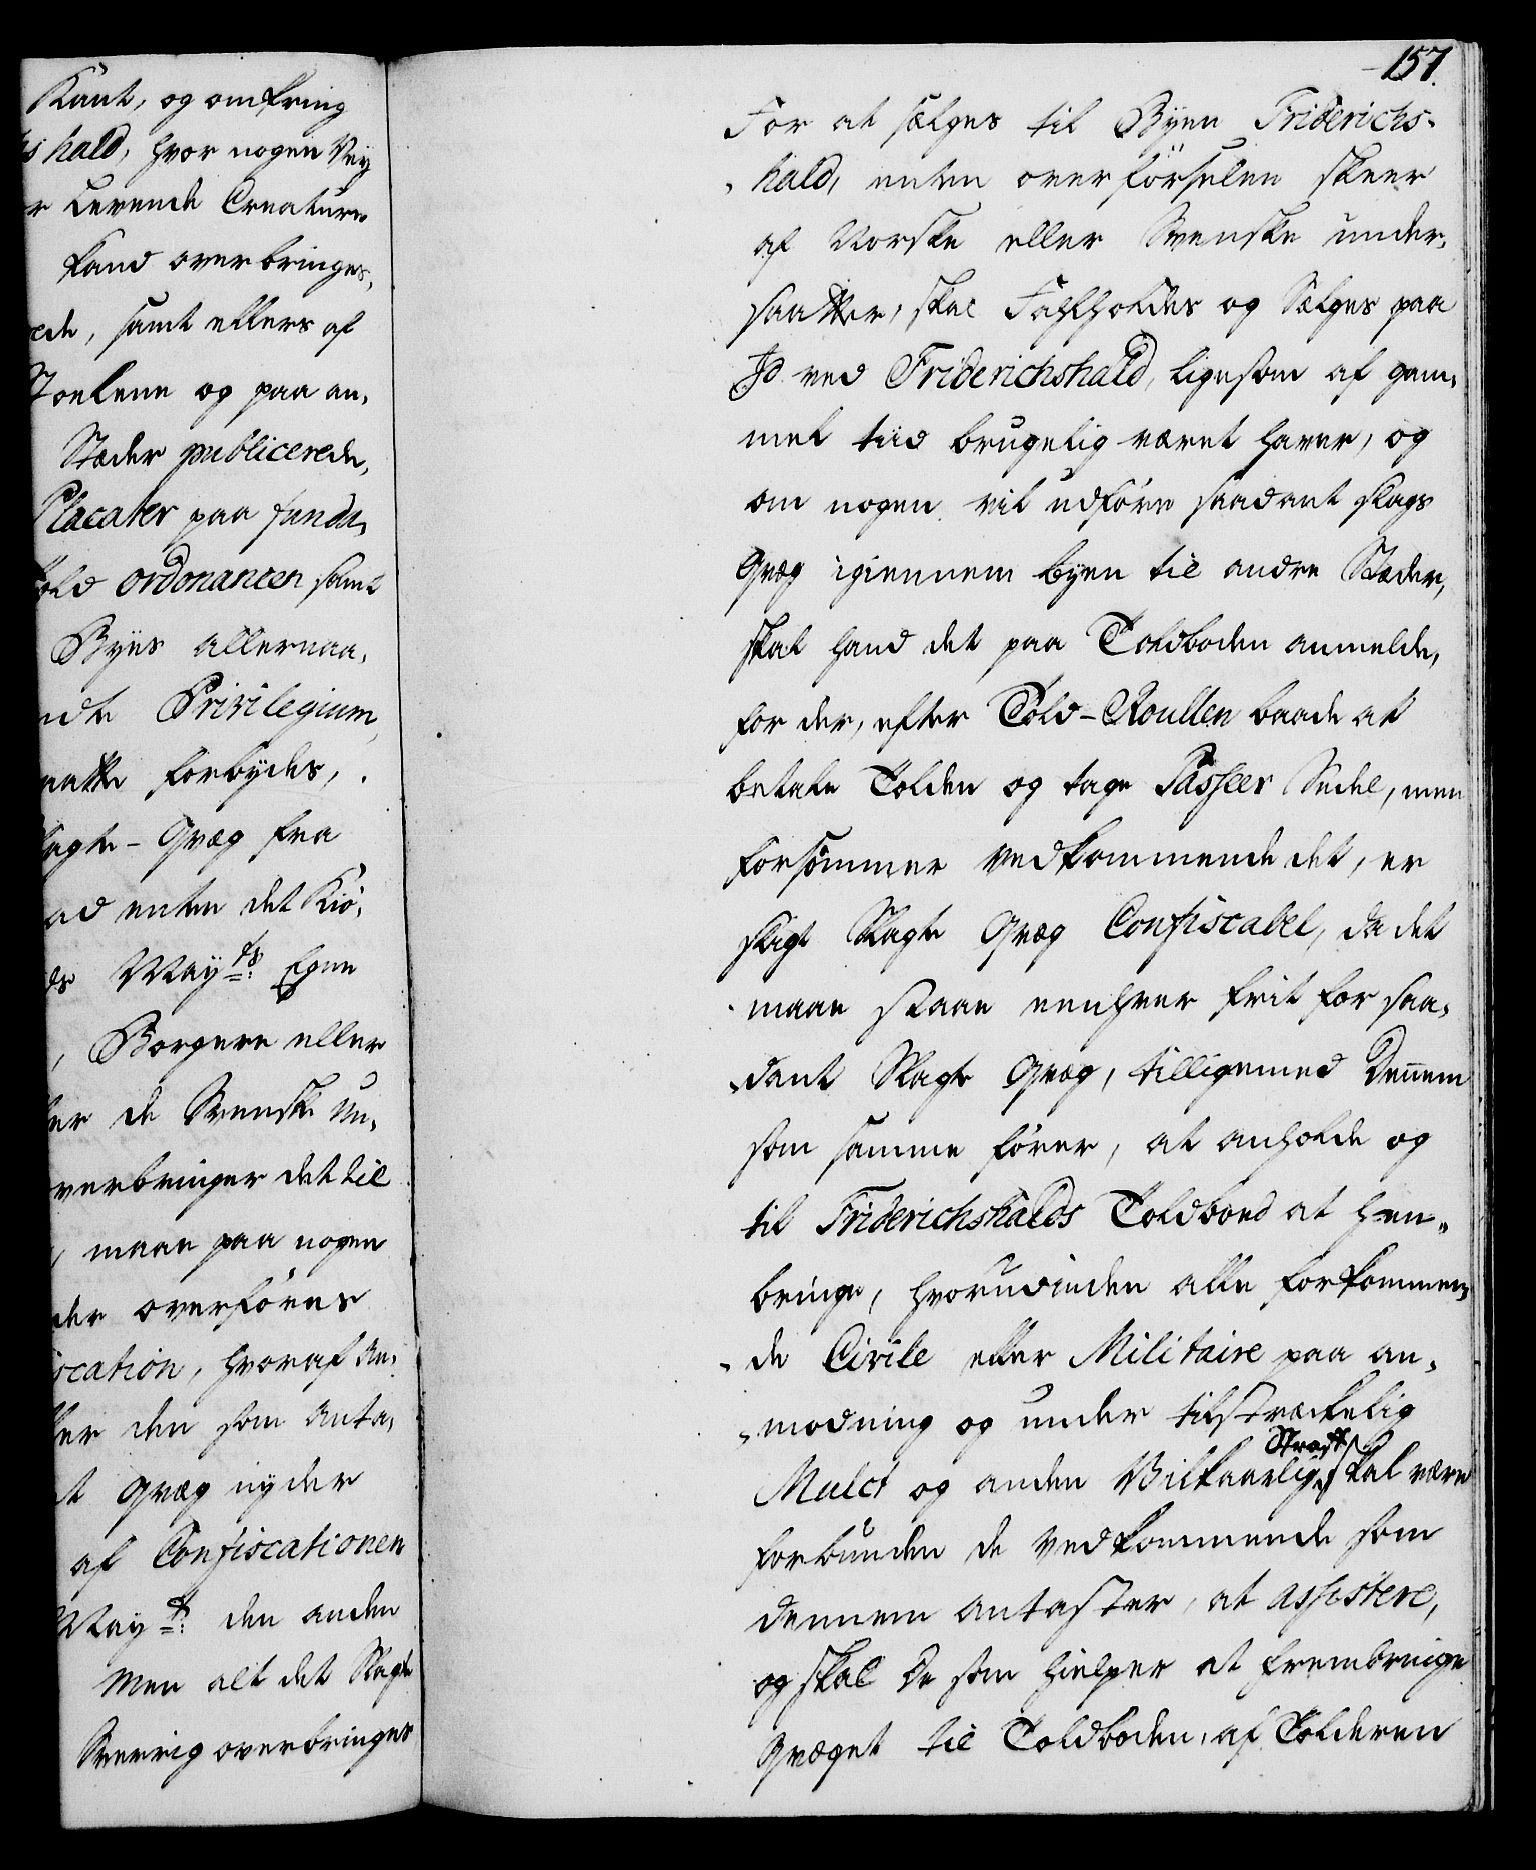 Kant, og omkring
hald, hvor nogen Vey
Levende Creature
kand overbringes,
ede, samt ellers af
Stoelene og paa an-
Stæder publicerede,
Placater paa funda-
told ordonancen samt
Byes allernaa-
ndte Privilegium,
forbydes,
lagte-Qvæg fra
enten det Kiö-
Mayts: Egne
, Borgere eller
er de Svenske Un-
verbringer det til
, maae paa nogen
der overföres
iscation, hvoraf An-
ler den som Anta-
t Qvæg nyder
af Confiscationen
Mayt: den anden
Men alt det Slagte
Sverrig overbringes
157.
For at sælges til Byen Friderichs-
hald, enten overförselen skeer
af Norske eller Svenske under-
saatter, skal Fahlholdes og Sælges paa
Id ved Friderichshald, ligesom af gam-
mel tiid brugelig været haver, og
om nogen vil udföre saadant slags
Qvæg igiennem byen til andre Stæder,
skal hand det paa Toldboden anmelde,
for der, efter Told-Roullen baade at
betale Tolden og tage Passeer Sedel, men
forsömmer vedkommende det, er
sligt Slagte Qvæg Confiscabel, da det
maae staae eenhver frit for saa-
dant Slagte Qvæg, tilligemed Dennem
som samme förer, at anholde og
til Friderichshalds Toldboed at hen-
bringe, hvorudinden alle forkommen-
de Civile eller Militaire paa an-
modning og under tilstrækelig
Straff
Mulct og anden Vilkaarlig skal være
forbunden de vedkommende som
dennem antaster, at assistere,
og skal De som hielper at frembringe
Qvæget til Toldboden, af Tolderen